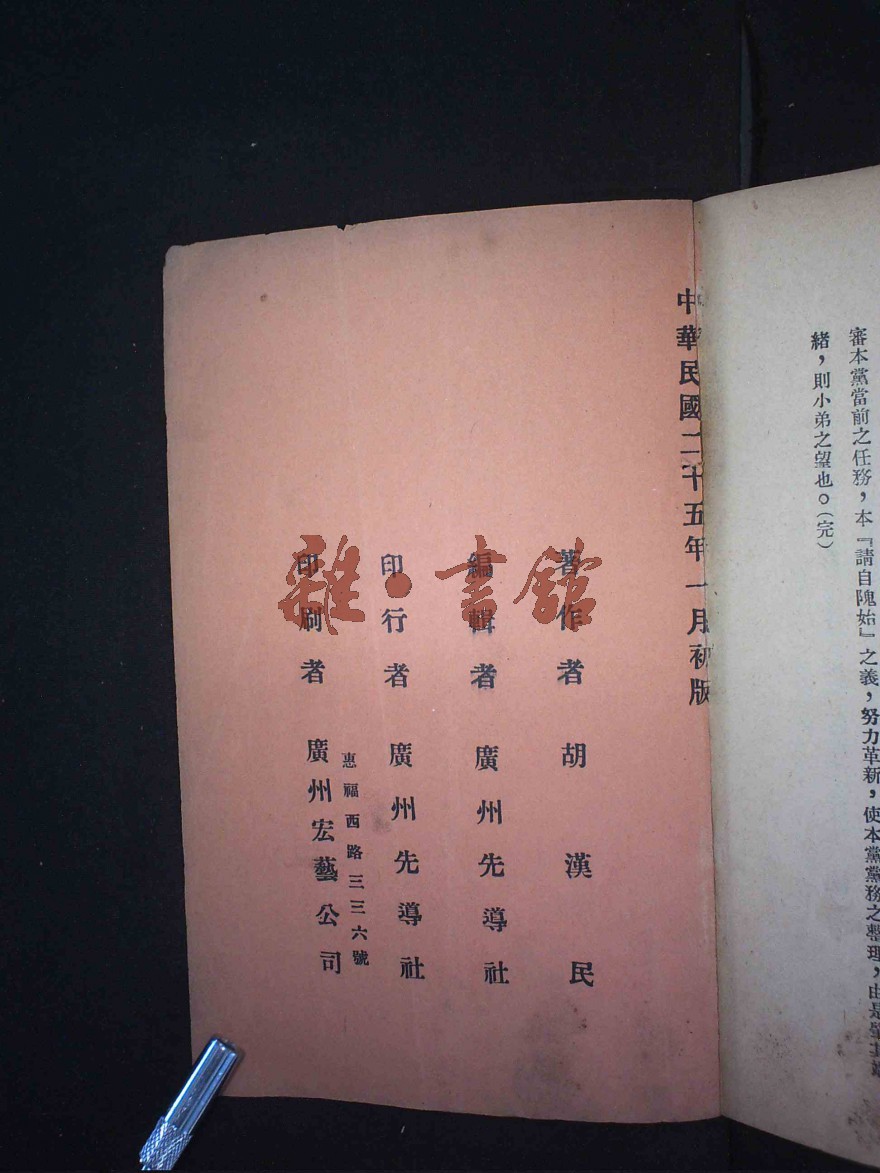 審本黨當前之任務，本『請自隗始』之義，努力革新，使本黨黨務之整理，由是肇其端
緒，則小弟之望也。（完）
中華民國二十五年一月初版
著作者 胡漢民
編輯者 廣州先導社
印行者 廣州先導社
惠福西路三三六號
印刷者 廣州宏藝公司
雜·書館